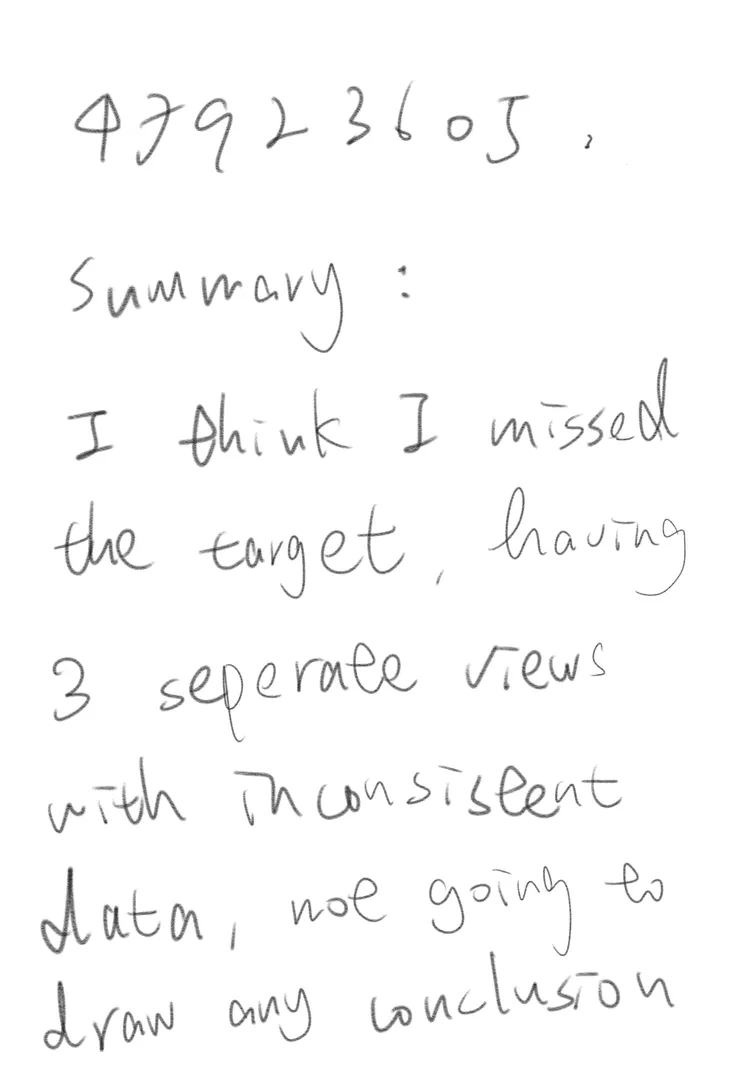 47923605,
Summary:
I think I missed
the target, having
3 seperate views
with inconsistent
data, not going to
draw any conclusion